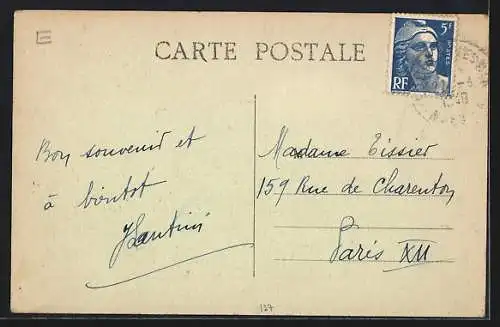 CARTE POSTALE
5F
POSTES
RF
Bon souvenir et
à bientot
Madame Tissier
159 Rue de Charenton
Paris XII
137